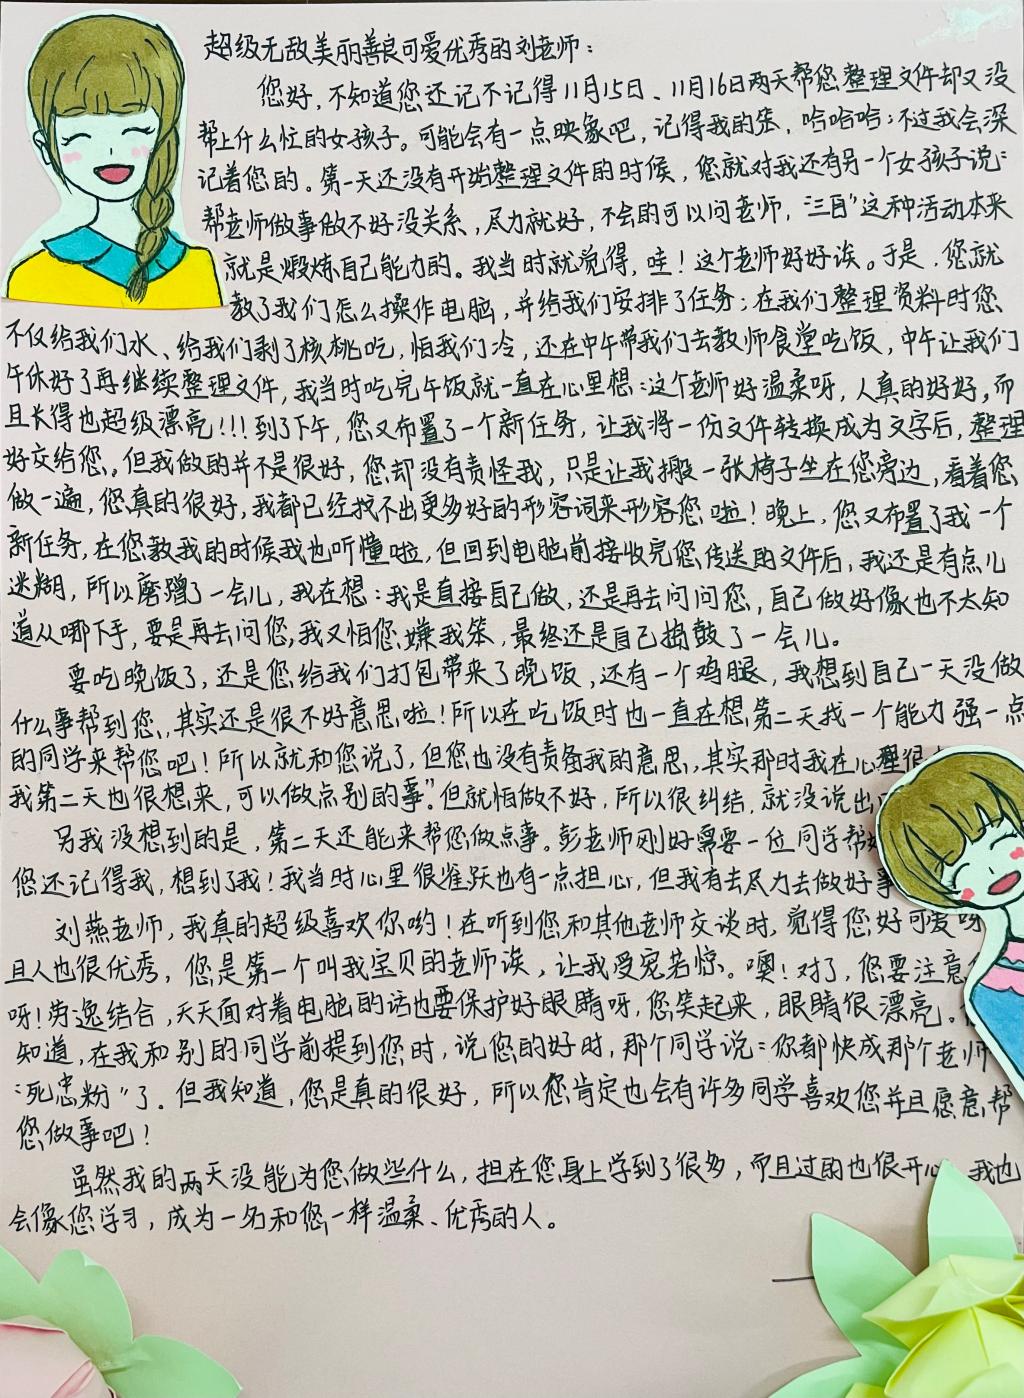 超级无敌美丽善良可爱优秀的刘老师：
您好，不知道您还记不记得11月15日、11月16日两天帮您整理文件却又没
帮上什么忙的女孩子。可能会有一点映象吧，记得我的笨，哈哈哈；不过我会深
记着您的。第一天还没有开始整理文件的时候，您就对我还有另一个女孩子说：
帮老师做事做不好没关系，尽力就好，不会的可以问老师，“三自”这种活动本来
就是煅炼自己能力的。我当时就觉得，哇！这个老师好好诶。于是，您就
教了我们怎么操作电脑，并给我们安排了任务；在我们整理资料时您
不仅给我们水、给我们剥了核桃吃，怕我们冷，还在中午带我们去教师食堂吃饭，中午让我们
午休好了再继续整理文件，我当时吃完午饭就一直在心里想：这个老师好温柔呀，人真的好好，而
且长得也超级漂亮！！！到了下午，您又布置了一个新任务，让我将一份文件转换成为文字后，整理
好交给您。但我做的并不是很好，您却没有责怪我，只是让我搬一张椅子坐在您旁边，看着您
做一遍，您真的很好，我都已经找不出更多好的形容词来形容您啦！晚上，您又布置了我一个
新任务，在您教我的时候我也听懂啦，但回到电脑前接收完您传送的文件后，我还是有点儿
迷糊，所以磨蹭了一会儿，我在想：我是直接自己做，还是再去问问您，自己做好像也不太知
道从哪下手，要是再去问您，我又怕您嫌我笨，最终还是自己捣鼓了一会儿。
要吃晚饭了，还是您给我们打包带来了晚饭，还有一个鸡腿，我想到自己一天没做
什么事帮到您，其实还是很不好意思啦！所以在吃饭时也一直在想第二天找一个能力强一点
的同学来帮您吧！所以就和您说了，但您也没有责备我的意思，其实那时我在心里很
我第二天也很想来，可以做点别的事”。但就怕做不好，所以很纠结，就没说出
另我没想到的是，第二天还能来帮您做点事。彭老师刚好需要一位同学帮
您还记得我，想到了我！我当时心里很雀跃也有一点担心，但我有去尽力去做好事
刘燕老师，我真的超级喜欢你哟！在听到您和其他老师交谈时，觉得您好可爱呀
且人也很优秀，您是第一个叫我宝贝的老师诶，让我受宠若惊。噢！对了，您要注意
呀！劳逸结合，天天面对着电脑的话也要保护好眼睛呀，您笑起来，眼睛很漂亮。
知道，在我和别的同学前提到您时，说您的好时，那个同学说：你都快成那个老师
“死忠粉”了。但我知道，您是真的很好，所以您肯定也会有许多同学喜欢您并且愿意帮
您做事吧！
虽然我的两天没能为您做些什么，担在您身上学到了很多，而且过的也很开心，我也
会像您学习，成为一名和您一样温柔、优秀的人。